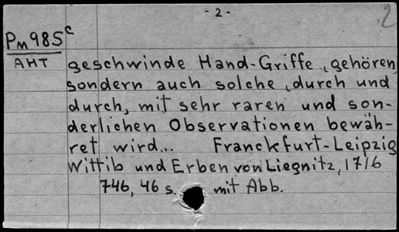 - 2 -
2
Pm985c
AHT
geschwinde Hand-Griffe, gehören,
sondern auch solche, durch und
durch, mit sehr raren und son-
derlichen Observationen bewäh-
ret wird... Franckfurt-Leipzig
Wittib und Erben von Liegnitz, 1716
746, 46 s. mit Abb.